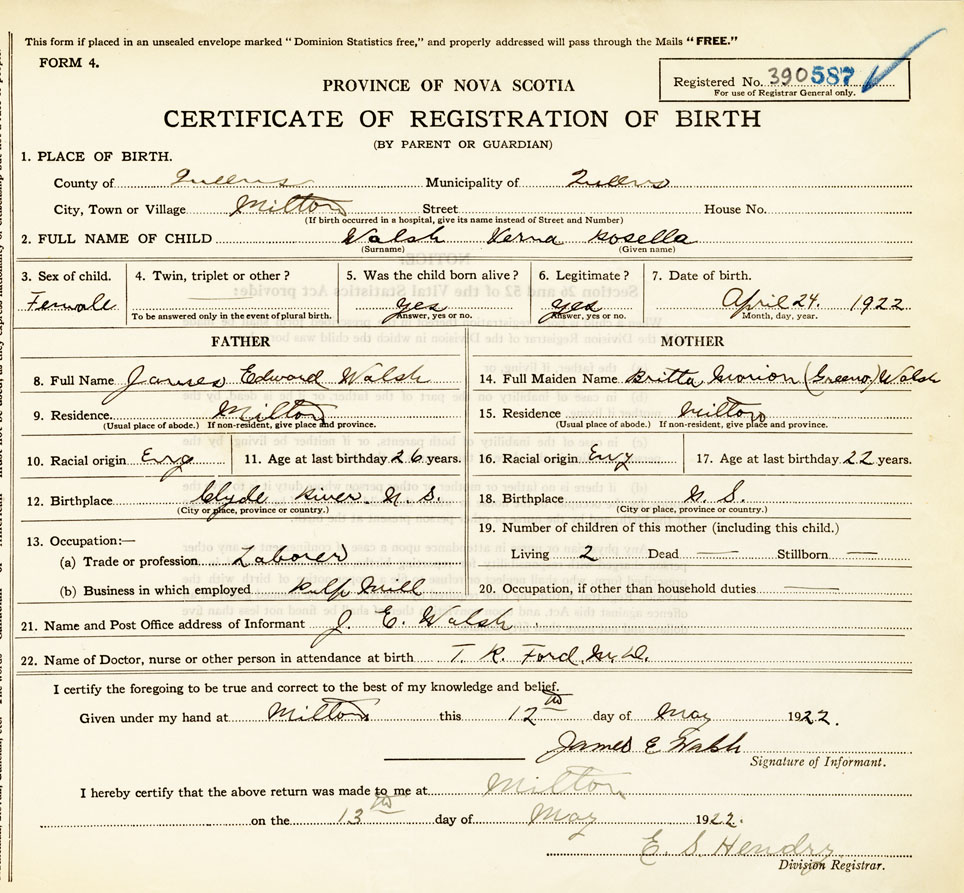 This form if placed in an unsealed envelope marked "Dominion Statistics free," and properly addressed will pass through the Mails "FREE."
FORM 4.
Registered No. 390587
For use of Registrar General only.
PROVINCE OF NOVA SCOTIA
CERTIFICATE OF REGISTRATION OF BIRTH
(BY PARENT OR GUARDIAN)
1. PLACE OF BIRTH.
County of Queens Municipality of Queens
City, Town or Village Milton Street House No.
(If birth occurred in a hospital, give its name instead of Street and Number)
2. FULL NAME OF CHILD Walsh Verna Rosella
(Surname) (Given name)
3. Sex of child. 4. Twin, triplet or other? 5. Was the child born alive? 6. Legitimate? 7. Date of birth.
Female yes yes April 24. 1922
To be answered only in the event of plural birth. Answer, yes or no. Answer, yes or no. Month, day, year.
FATHER MOTHER
8. Full Name James Edward Walsh 14. Full Maiden Name Britta Marion (Greeno) Walsh
9. Residence Milton 15. Residence Milton
(Usual place of abode.) If non-resident, give place and province. (Usual place of abode.) If non-resident, give place and province.
10. Racial origin Eng 11. Age at last birthday 26 years. 16. Racial origin Eng 17. Age at last birthday 22 years.
12. Birthplace Clyde River N. S. 18. Birthplace N. S.
(City or place, province or country.) (City or place, province or country.)
13. Occupation:— 19. Number of children of this mother (including this child.)
(a) Trade or profession Laborer Living 2 Dead — Stillborn —
(b) Business in which employed Pulp Mill 20. Occupation, if other than household duties —
21. Name and Post Office address of Informant J. E. Walsh
22. Name of Doctor, nurse or other person in attendance at birth T. R. Ford M.D.
I certify the foregoing to be true and correct to the best of my knowledge and belief.
Given under my hand at Milton this 12th day of May 1922.
James E Walsh
Signature of Informant.
I hereby certify that the above return was made to me at Milton
on the 13th day of May 1922.
E. S. Hendry
Division Registrar.